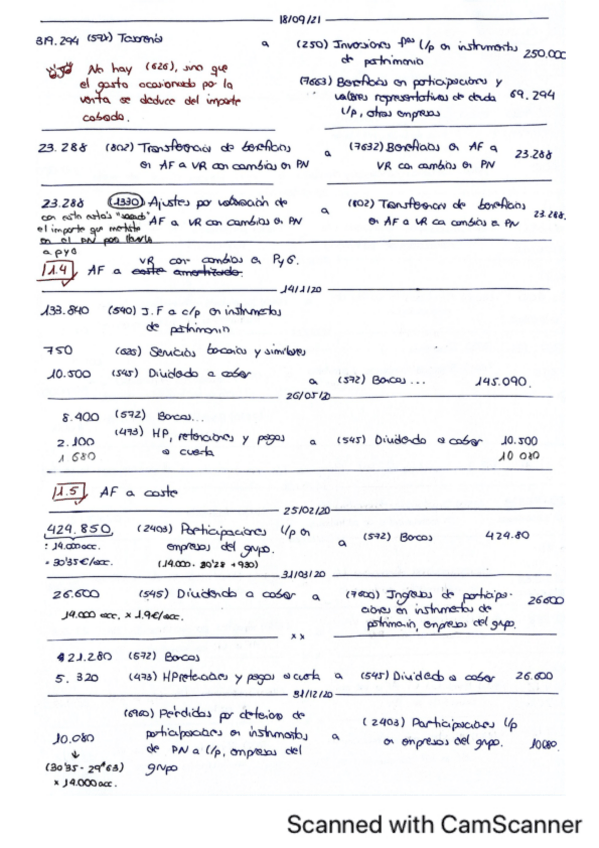 18/09/21
319.294 (572) Tesorería a (250) Inversiones fras l/p en instrumentos 250.000
de patrimonio
No hay (626), sino que
el gasto ocasionado por la
venta se deduce del importe
cobrado.
(7663) Beneficios en participaciones y
valores representativos de deuda 69.294
l/p, otras empresas
23.288 (802) Transferencia de beneficios a (7632) Beneficios en AF a 23.288
en AF a VR con cambios en PN VR con cambios en PN
23.288 (1330) Ajustes por valoración de a (802) Transferencia de beneficios 23.288.
AF a VR con cambios en PN en AF a VR ca cambios a PN
con esta nota's "sacado"
el importe que metiste
en el PN para llevarla
a PyG
1.4 AF a coste amortizado. VR con cambios a PyG.
14/1/20
133.840 (540) I.F a c/p en instrumentos
de patrimonio
750 (626) Servicios bancarios y similares
10.500 (545) Dividendo a cobrar a (572) Bancos... 145.090.
26/05/20
8.400 (572) Bancos...
2.100 (473) HP, retenciones y pagos a (545) Dividendo a cobrar 10.500
1 680 a cuenta 10 080
1.5 AF a coste
25/02/20
424.850 (2403) Participaciones l/p en a (572) Bancos 424.80
: 14.000 acc. empresas del grupo.
= 30'35 €/acc. (14.000 · 30'28 + 930)
31/03/20
26.600 (545) Dividendo a cobrar a (7600) Ingresos de participa- 26600
14.000 acc. x 1.9€/acc. ciones en instrumentos de
patrimonio, empresas del grupo.
x x
21.280 (572) Bancos
5. 320 (473) HP retenciones y pagos a cuenta a (545) Dividendo a cobrar 26.600
31/12/20
(6960) Pérdidas por deterioro de
10.080 participaciones en instrumentos a (2403) Participaciones l/p
de PN a l/p, empresas del en empresas del grupo. 10080
(30'35 - 29'63) grupo
x 14.000 acc.
Scanned with CamScanner